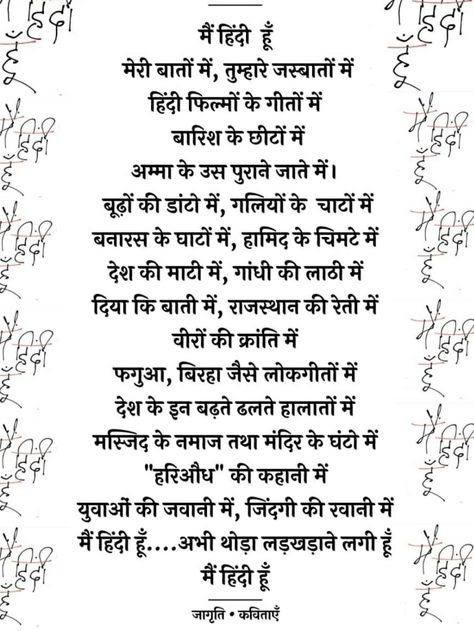 मैं हिंदी हूँ
मेरी बातों में, तुम्हारे जस्बातों में
हिंदी फिल्मों के गीतों में
बारिश के छीटों में
अम्मा के उस पुराने जाते में।
बूढ़ों की डांटो में, गलियों के चाटों में
बनारस के घाटों में, हामिद के चिमटे में
देश की माटी में, गांधी की लाठी में
दिया कि बाती में, राजस्थान की रेती में
वीरों की क्रांति में
फगुआ, बिरहा जैसे लोकगीतों में
देश के इन बढ़ते ढलते हालातों में
मस्जिद के नमाज तथा मंदिर के घंटो में
"हरिऔध" की कहानी में
युवाओं की जवानी में, जिंदगी की रवानी में
मैं हिंदी हूँ....अभी थोड़ा लड़खड़ाने लगी हूँ
मैं हिंदी हूँ
जागृति • कविताएँ
हिंदी
हूँ
मैं हिंदी
हूँ
मैं हिंदी
हूँ
मैं हिंदी
हूँ
मैं हिंदी
हूँ
मैं हिंदी
हूँ
हिंदी
हूँ
मैं हिंदी
हूँ
मैं हिंदी
हूँ
मैं हिंदी
हूँ
मैं हिंदी
हूँ
मैं हिंदी
हूँ